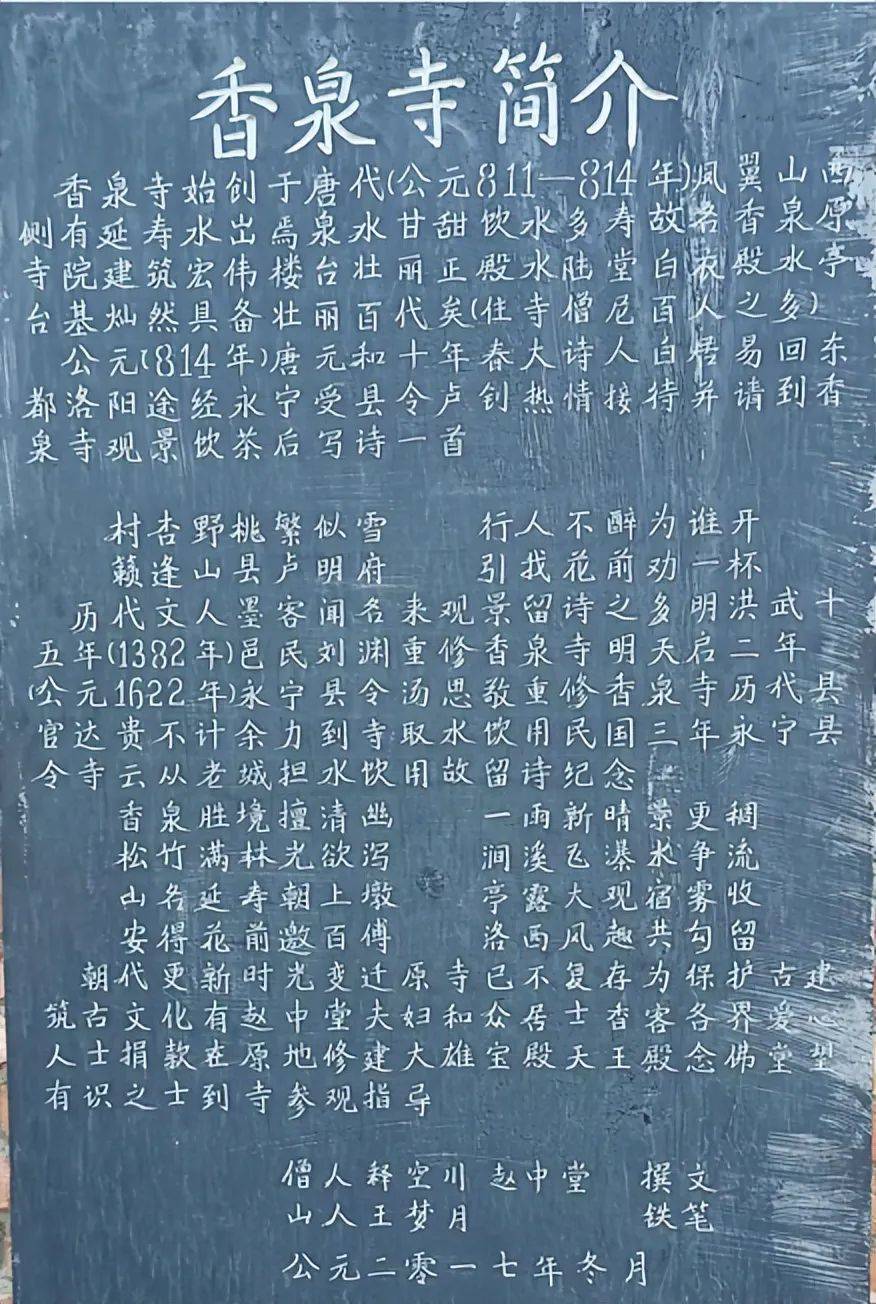 香泉寺简介
香泉寺始创于唐代(公元811—814年)凤翼山西
侧有延寿水出焉泉水甘甜饮水多寿故名香泉原
寺院建筑宏伟楼台壮丽正殿水陆堂白衣殿水亭
台基灿然具备壮丽百代矣(住寺僧尼百人之多)
公元(814年)唐元和十年春大诗人白居易回东
都洛阳途经永宁受县令卢钊热情接待并请到香
泉寺观景饮茶后写诗一首
村杏野桃繁似雪行人不醉为谁开
籁逢山县卢明府引找花前劝一杯
历代文人墨客闻名来观景留诗之多明洪武十
五年(1382年)邑民刘渊重修香泉寺明天启二年
(公元1622年)永宁县令汤思敬重修香泉寺历代县
官达贵不计余力到寺取水饮用民国三年永宁县
令寺云从老城担水饮用故留诗纪念
香泉胜境擅清幽一雨新晴景更稠
松竹满林光欲泻涧溪飞瀑水争流
山名延寿朝上墩亭露大观宿雾收
安得花前邀百傅洛西风趣共勾留
朝代更新时光变迁原寺已不复存为保护古建
筑古文化有赵中堂夫妇和众居士香客各界爱心
人士捐款在原地修建大雄宝殿天王殿念佛堂望
有识之士到寺参观指导
僧人释空川 赵中堂 撰文
山人王梦月 铁笔
公元二零一七年冬月